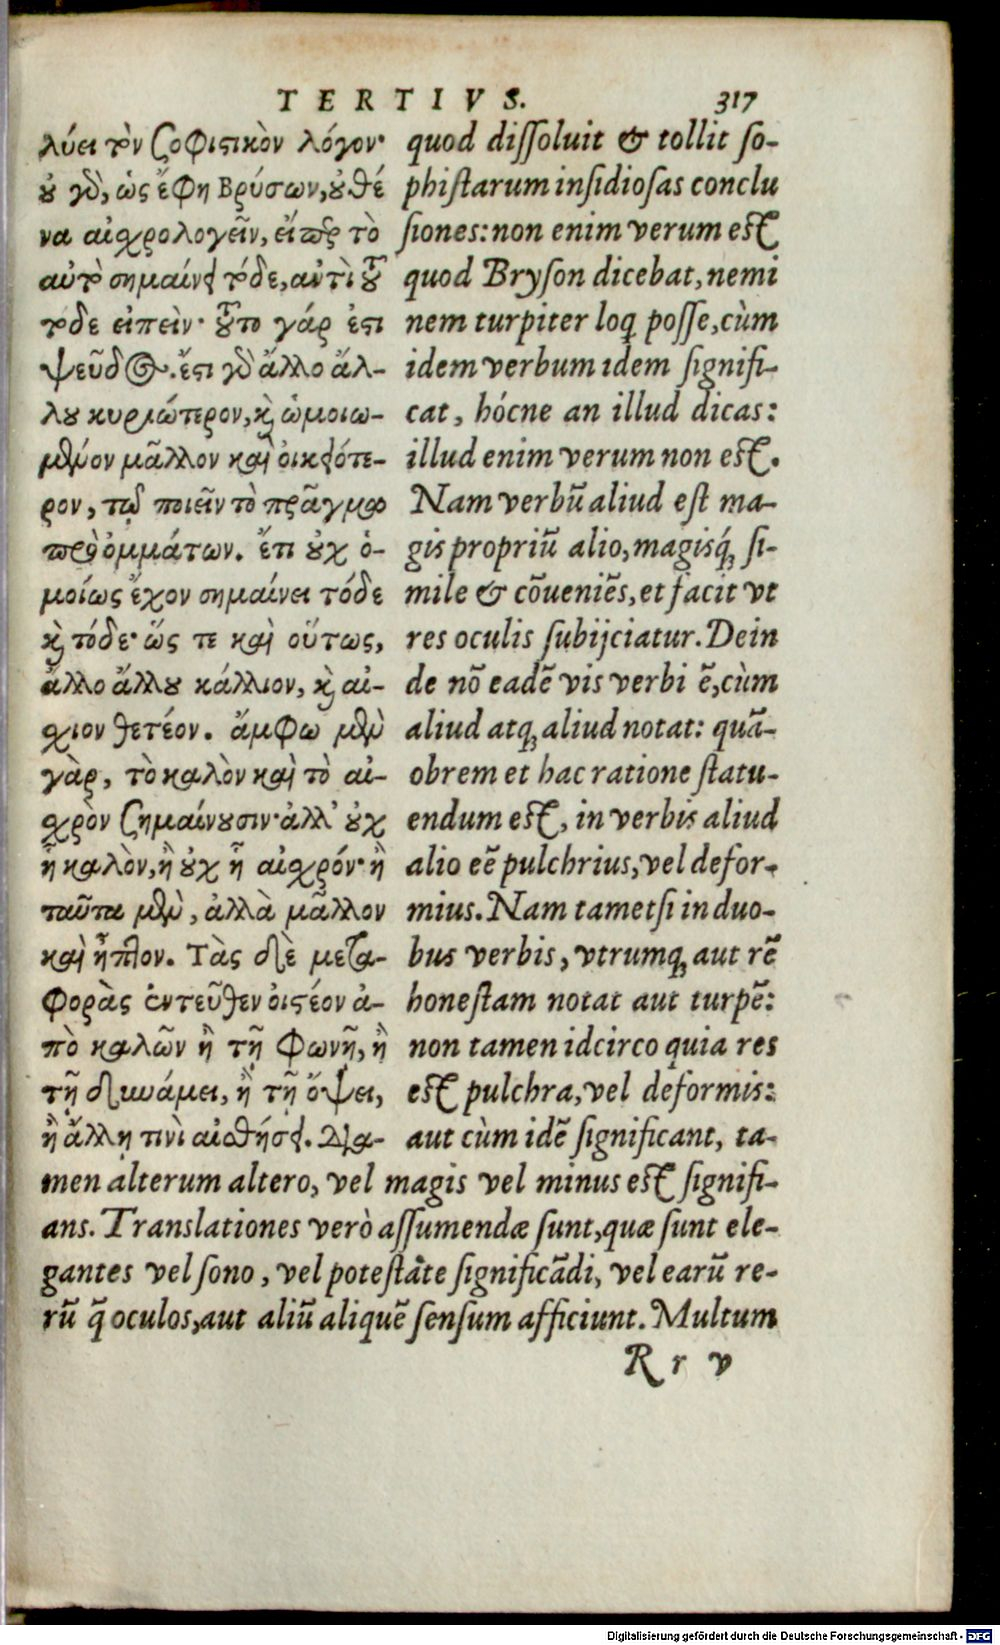 TERTIVS. 317
λύει τὸν σοφιστικὸν λόγον·
οὐ γὰρ, ὡς ἔφη Βρύσων, οὐθέ
να αἰσχρολογεῖν, εἴπερ τὸ
αὐτὸ σημαίνει τόδε, ἀντὶ τοῦ
τόδε εἰπεῖν· τοῦτο γάρ ἐστι
ψεῦδος. ἔστι γὰρ ἄλλο ἄλ-
λου κυριώτερον, καὶ ὡμοιω-
μένον μᾶλλον καὶ οἰκειότε-
ρον, τῷ ποιεῖν τὸ πρᾶγμα
πρὸ ὀμμάτων. ἔτι οὐχ ὁ-
μοίως ἔχον σημαίνει τόδε
καὶ τόδε· ὥς τε καὶ οὕτως,
ἄλλο ἄλλου κάλλιον, καὶ αἴ-
σχιον θετέον. ἄμφω μὲν
γὰρ, τὸ καλὸν καὶ τὸ αἰ-
σχρὸν σημαίνουσιν· ἀλλ' οὐχ
ᾗ καλὸν, ἢ οὐχ ᾗ αἰσχρόν· ἢ
ταῦτα μὲν, ἀλλὰ μᾶλλον
καὶ ἧττον. Τὰς δὲ μετα-
φορὰς ἐντεῦθεν οἰστέον ἀ-
πὸ καλῶν ἢ τῇ φωνῇ, ἢ
τῇ δυνάμει, ἢ τῇ ὄψει,
ἢ ἄλλῃ τινὶ αἰσθήσει. Δια-
quod dissoluit & tollit so-
phistarum insidiosas conclu
siones: non enim verum est
quod Bryson dicebat, nemi
nem turpiter loq posse, cùm
idem verbum idem signifi-
cat, hócne an illud dicas:
illud enim verum non est.
Nam verbũ aliud est ma-
gis propriũ alio, magisq́; si-
mile & cõueniẽs, et facit vt
res oculis subijciatur. Dein
de nõ eadẽ vis verbi ẽ, cùm
aliud atq; aliud notat: quã-
obrem et hac ratione statu-
endum est, in verbis aliud
alio eẽ pulchrius, vel defor-
mius. Nam tametsi in duo-
bus verbis, vtrumq; aut rẽ
honestam notat aut turpẽ:
non tamen idcirco quia res
est pulchra, vel deformis:
aut cùm idẽ significant, ta-
men alterum altero, vel magis vel minus est signifi-
ans. Translationes verò assumendæ sunt, quæ sunt ele-
gantes vel sono, vel potestate significãdi, vel earũ re-
rũ q̃ oculos, aut aliũ aliquẽ sensum afficiunt. Multum
R r v
Digitalisierung gefördert durch die Deutsche Forschungsgemeinschaft - DFG